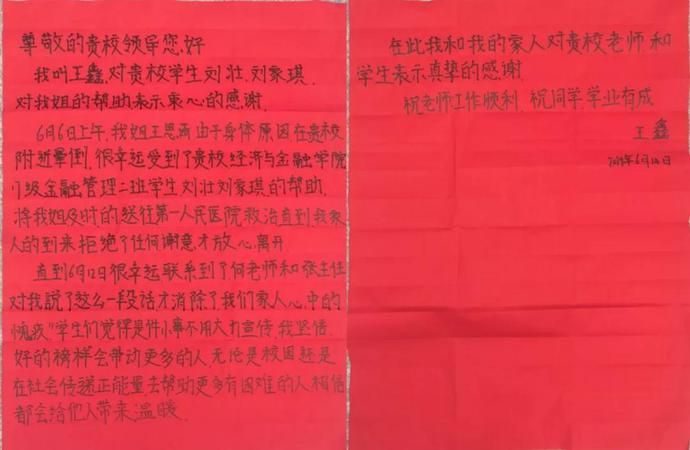 尊敬的贵校领导您好
我叫王鑫,对贵校学生刘壮.刘家琪.
对我姐的帮助表示衷心的感谢.
6月6日上午,我姐王恩函由于身体原因在贵校
附近晕倒.很幸运受到了贵校经济与金融学院
17级金融管理二班学生刘壮刘家琪的帮助.
将我姐及时的送往第一人民医院救治直到我家
人的到来拒绝了任何谢意才放心离开.
直到6月12日很幸运联系到了何老师和张主任
对我说了这么一段话才消除了我们家人心中的
愧疚"学生们觉得是件小事不用大力宣传.我坚信
好的榜样会带动更多的人.无论是校园还是
在社会传递正能量去帮助更多有困难的人相信
都会给他人带来温暖.
在此我和我的家人对贵校老师和
学生表示真挚的感谢.
祝老师工作顺利.祝同学学业有成
王鑫
6月12日